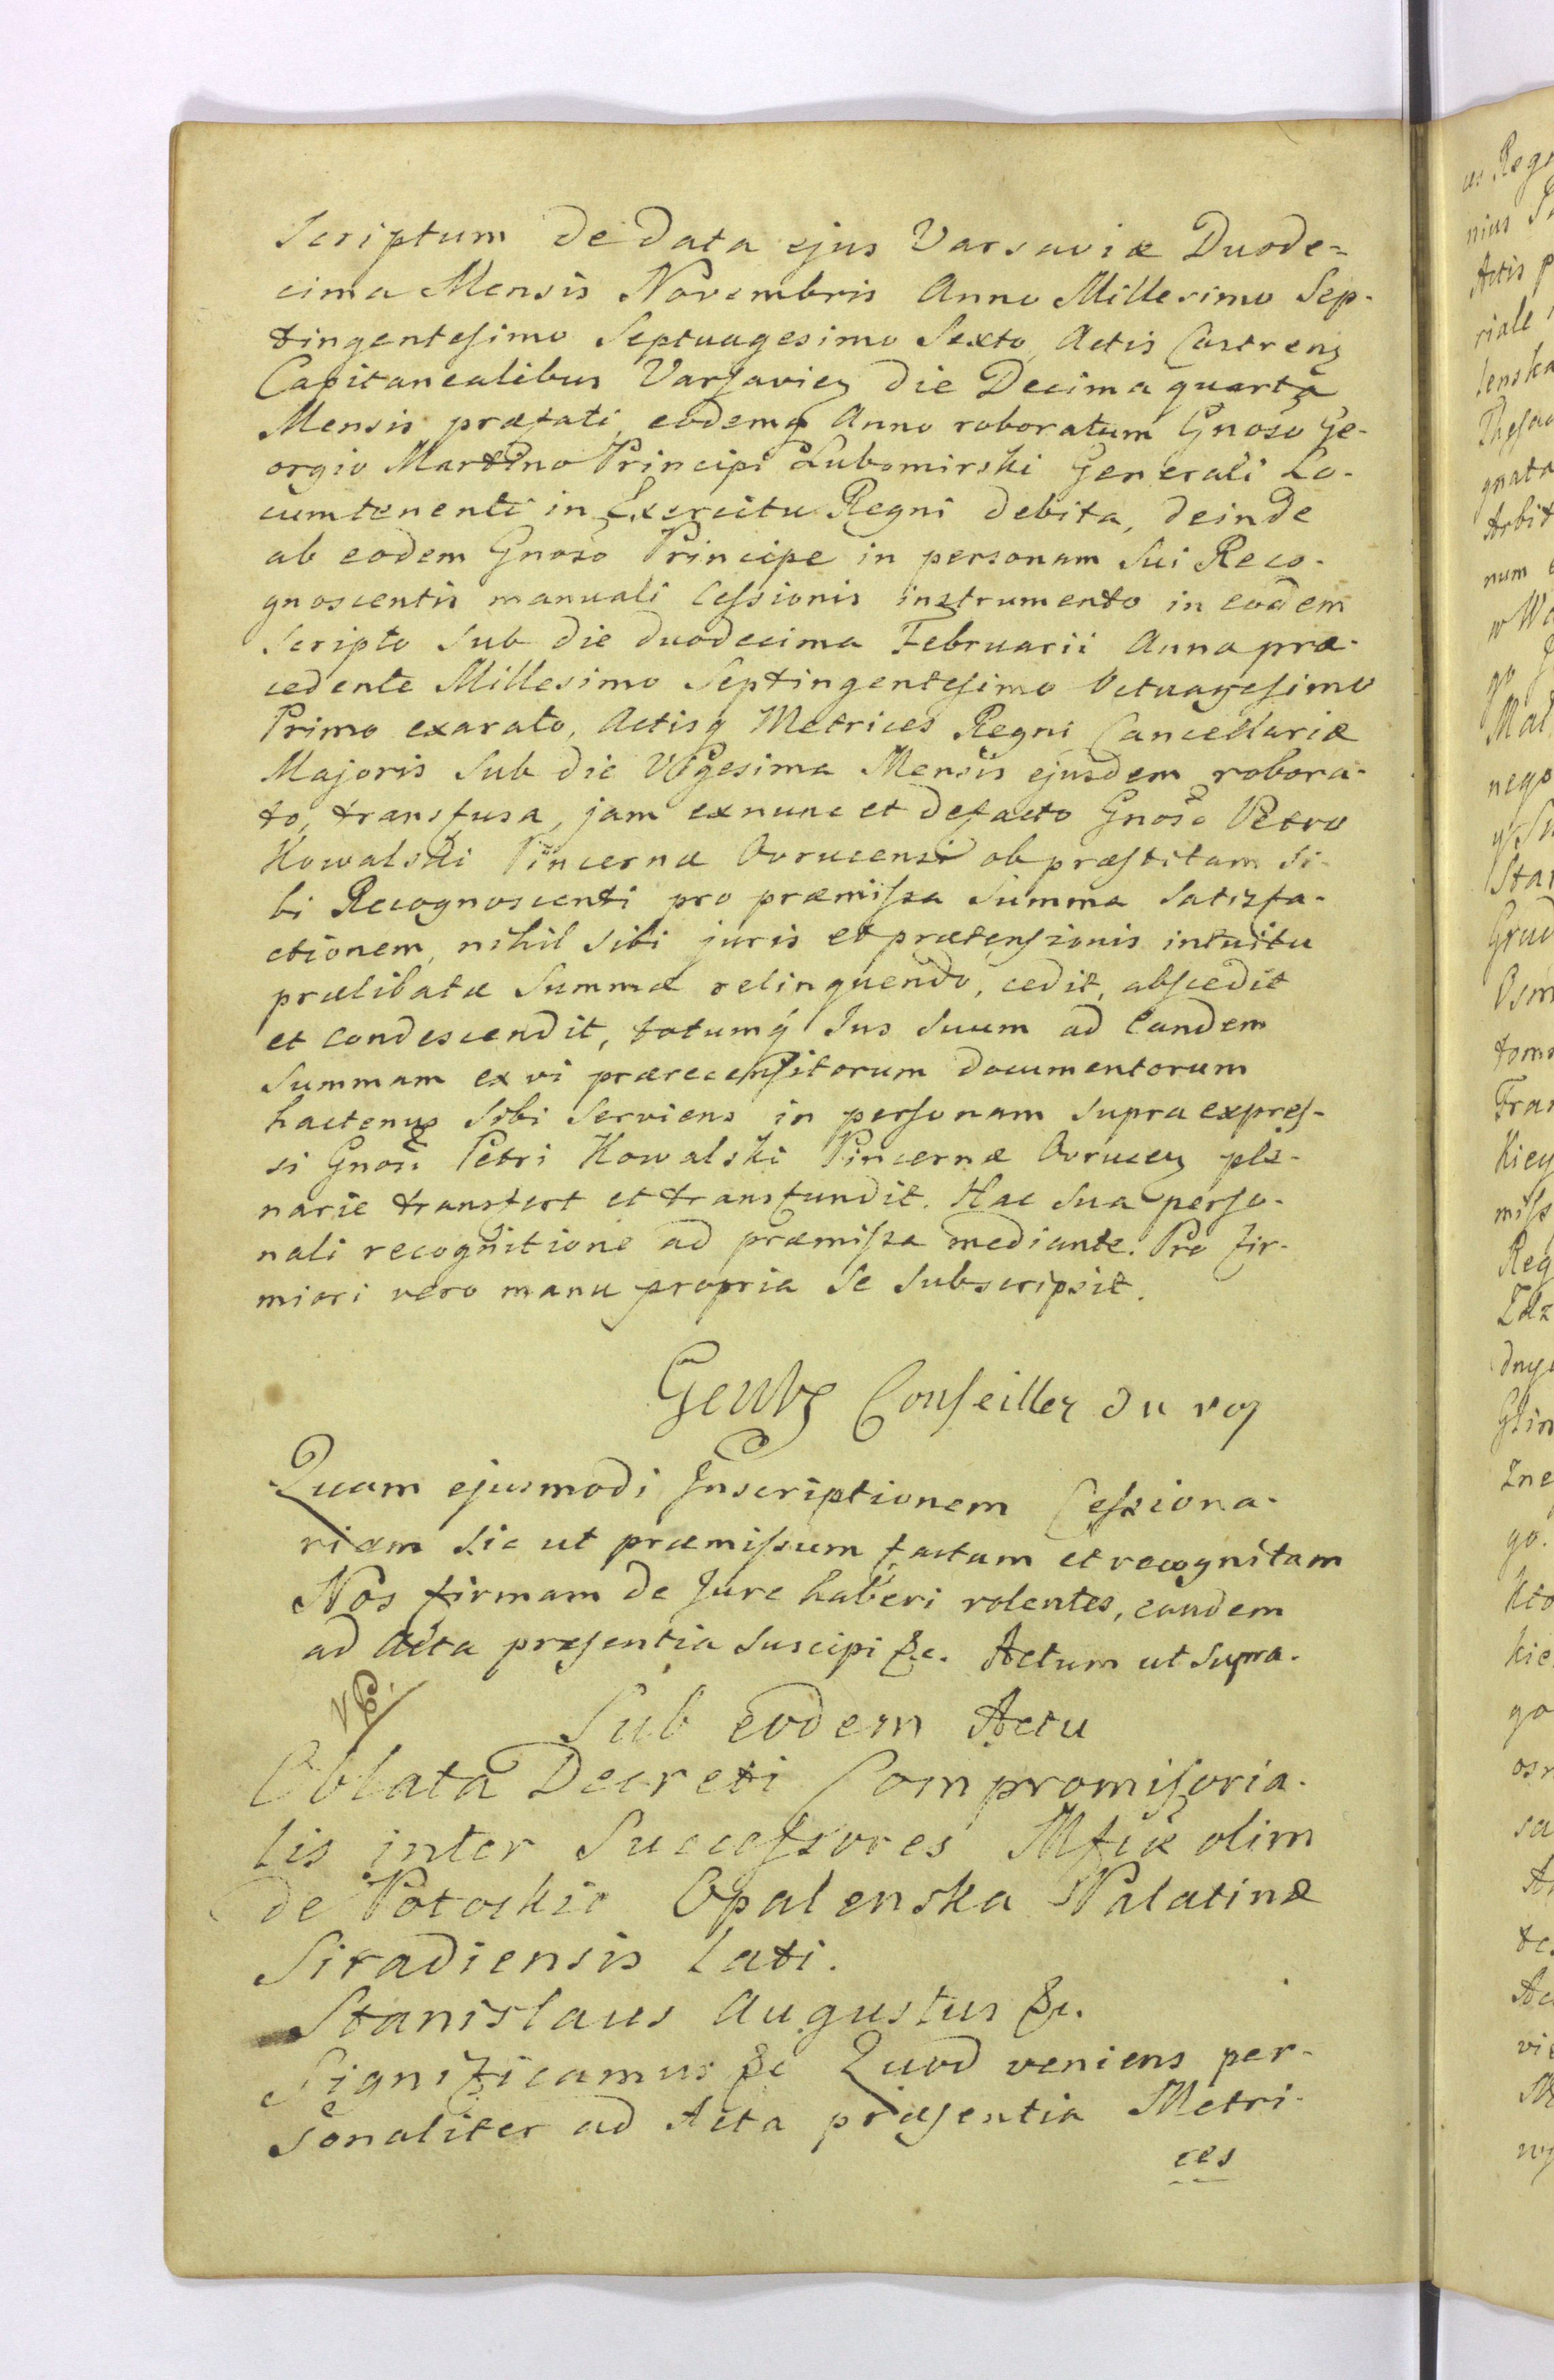 Scriptum de data ejus Varsaviæ Duode-
cima Mensis Novembris Anno Millesimo Sep-
tingentesimo Septuagesimo Sexto, Actis Castrenz
Capitanealibus Varsaviez die Decima quarta
Mensis præfati, eodemq Anno roboratum Gnoso Ge-
orgio Martino Principi Lubomirski Generali Lo-
cumtenenti in Exercitu Regni debita, deinde
ab eodem Gnoso Principe in personam sui Reco-
gnoscentis manuali Cessionis instrumento in eodem
Scripto sub die duodecima Februarii Anno præ-
cedente Millesimo Septingentesimo Octuagesimo
Primo exarato, Actisq Metrices Regni Cancellariæ
Majoris sub die Vigesima Mensis ejusdem robora-
to, transfusa, jam exnunc et defacto Gnoso Petro
Kowalski Pincernæ Ovrucensi ob præstitam si-
bi Recognoscenti pro præmissa Summa satisfa-
ctionem, nihil sibi juris et prætensionis intuitu
prælibatæ Summæ relinquendo, cedit, abscedit
et condescendit, totumq Jus suum ad eandem
Summam ex vi prærecensitorum documentorum
hactenus sibi serviens in personam supra expres-
si Gnosi Petri Kowalski Pincernæ Ovrucez ple-
narie transfert et transfundit. Hac sua perso-
nali recognitione ad præmissa mediante. Pro fir-
miori vero manu propria se subscripsit.
Conseiller du roy
Quam ejusmodi Inscriptionem Cessiona-
riam sic ut præmissum factam et recognitam
Nos firmam de Jure haberi volentes, eandem
ad Acta præsentia suscipi &c. Actum ut supra.
Sub eodem Actu
Oblata Decreti Compromissoria-
lis inter Successores Mficæ olim
de Potockie Opalenska Palatinæ
Siradiensis Lati.
Stanislaus Augustus &c.
Significamus &c Quod veniens per-
sonaliter ad Acta præsentia Metri-
ces